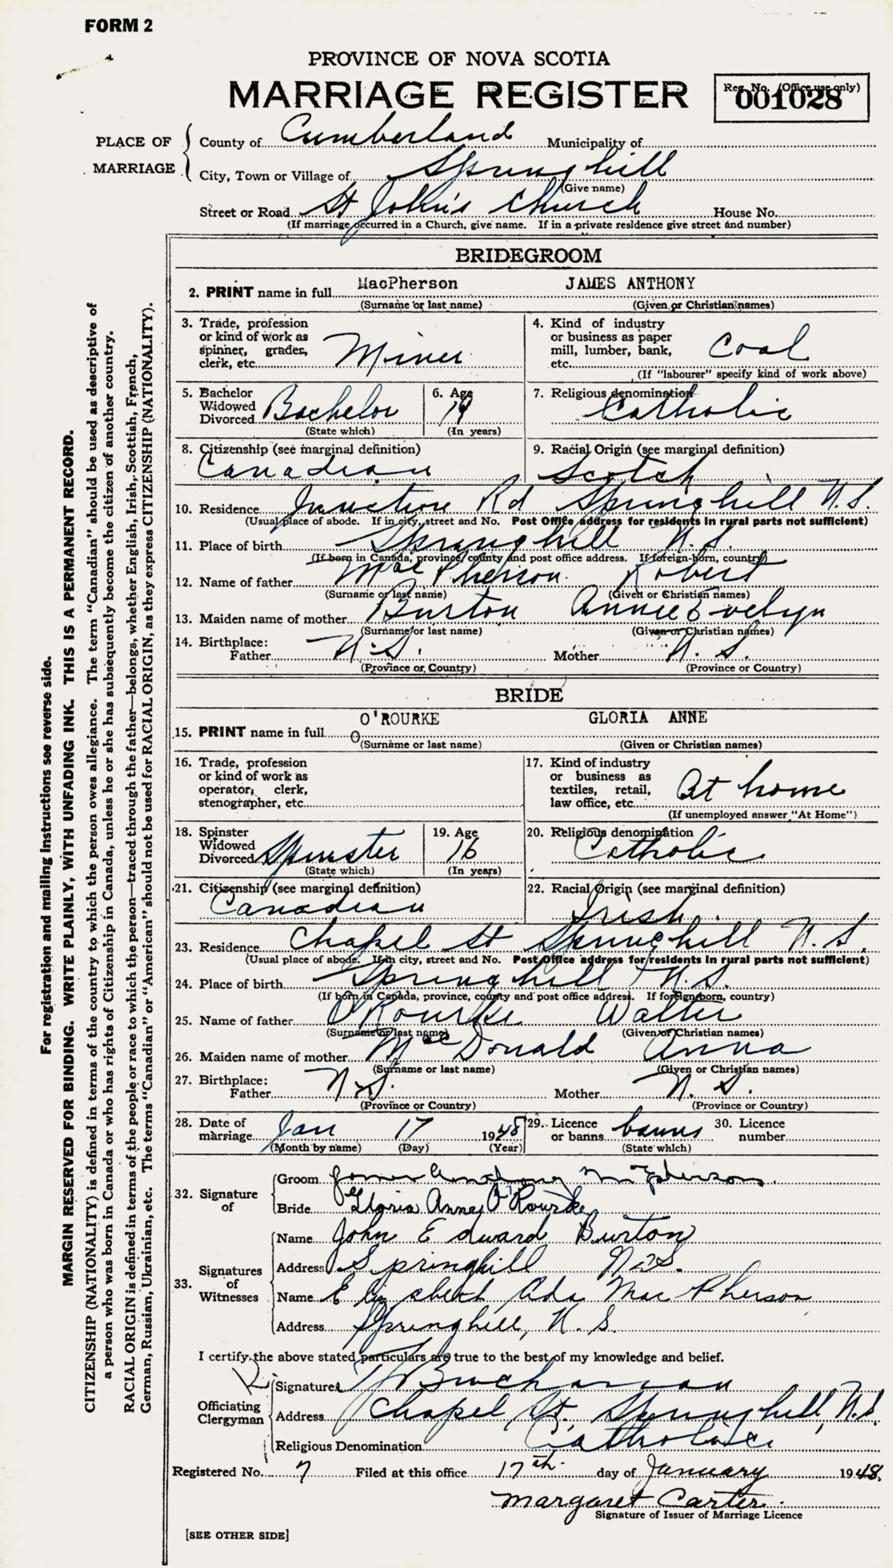 FORM 2
PROVINCE OF NOVA SCOTIA
MARRIAGE REGISTER
Reg. No. (Office use only)
001028
PLACE OF MARRIAGE
County of Cumberland Municipality of
City, Town or Village of Springhill
(Give name)
Street or Road St John's Church House No.
(If marriage occurred in a Church, give name. If in a private residence give street and number)
BRIDEGROOM
2. PRINT name in full MacPherson JAMES ANTHONY
(Surname or last name) (Given or Christian names)
3. Trade, profession or kind of work as spinner, grader, clerk, etc. Miner
4. Kind of industry or business as paper mill, lumber, bank, etc. Coal
(If "labourer" specify kind of work above)
5. Bachelor Widowed Divorced Bachelor
(State which)
6. Age 19
(In years)
7. Religious denomination Catholic
8. Citizenship (see marginal definition)
Canadian
9. Racial Origin (see marginal definition)
Scotch
10. Residence Junction Rd Springhill N.S.
(Usual place of abode. If in city, street and No. Post Office address for residents in rural parts not sufficient)
11. Place of birth Springhill N.S.
(If born in Canada, province, county and post office address. If foreign-born, country)
12. Name of father MacPherson Robert
(Surname or last name) (Given or Christian names)
13. Maiden name of mother Burton Annie Evelyn
(Surname or last name) (Given or Christian names)
14. Birthplace:
Father N.S. Mother N.S.
(Province or Country) (Province or Country)
BRIDE
O'ROURKE GLORIA ANNE
15. PRINT name in full O
(Surname or last name) (Given or Christian names)
16. Trade, profession or kind of work as operator, clerk, stenographer, etc.
17. Kind of industry or business as textiles, retail, law office, etc. At home
(If unemployed answer "At Home")
18. Spinster Widowed Divorced Spinster
(State which)
19. Age 16
(In years)
20. Religious denomination
Catholic
21. Citizenship (see marginal definition)
Canadian
22. Racial Origin (see marginal definition)
Irish
23. Residence Chapel St Springhill N.S.
(Usual place of abode. If in city, street and No. Post Office address for residents in rural parts not sufficient)
24. Place of birth Springhill N.S.
(If born in Canada, province, county and post office address. If foreign born, country)
25. Name of father O'Rourke Walter
(Surname or last name) (Given or Christian names)
26. Maiden name of mother MacDonald Anna
(Surname or last name) (Given or Christian names)
27. Birthplace:
Father N.S. Mother N.S.
(Province or Country) (Province or Country)
28. Date of marriage Jan 17 1948
(Month by name) (Day) (Year)
29. Licence or banns banns
(State which)
30. Licence number
32. Signature of
Groom James Anthony McPherson
Bride Gloria Anne O'Rourke
33. Signatures of Witnesses
Name John Edward Burton
Address Springhill N.S.
Name Elizabeth Ada MacPherson
Address Springhill, N.S.
I certify the above stated particulars are true to the best of my knowledge and belief.
Officiating Clergyman
Signature Buchanan
Address Chapel St. Springhill, N.S.
Religious Denomination Catholic
Registered No. 7 Filed at this office 17th day of January 1948.
Margaret Carter
Signature of Issuer of Marriage Licence
[SEE OTHER SIDE]
For registration and mailing instructions see reverse side.
MARGIN RESERVED FOR BINDING. WRITE PLAINLY, WITH UNFADING INK. THIS IS A PERMANENT RECORD.
CITIZENSHIP (NATIONALITY) is defined in terms of the country to which the person owes allegiance. The term "Canadian" should be used as descriptive of
a person who was born in Canada or who has rights of Citizenship in Canada, unless he or she has subsequently become the citizen of another country.
RACIAL ORIGIN is defined in terms of the people or race to which the person—traced through the father—belongs, whether English, Irish, Scottish, French,
German, Russian, Ukrainian, etc. The terms "Canadian" or "American" should not be used for RACIAL ORIGIN, as they express CITIZENSHIP (NATIONALITY).